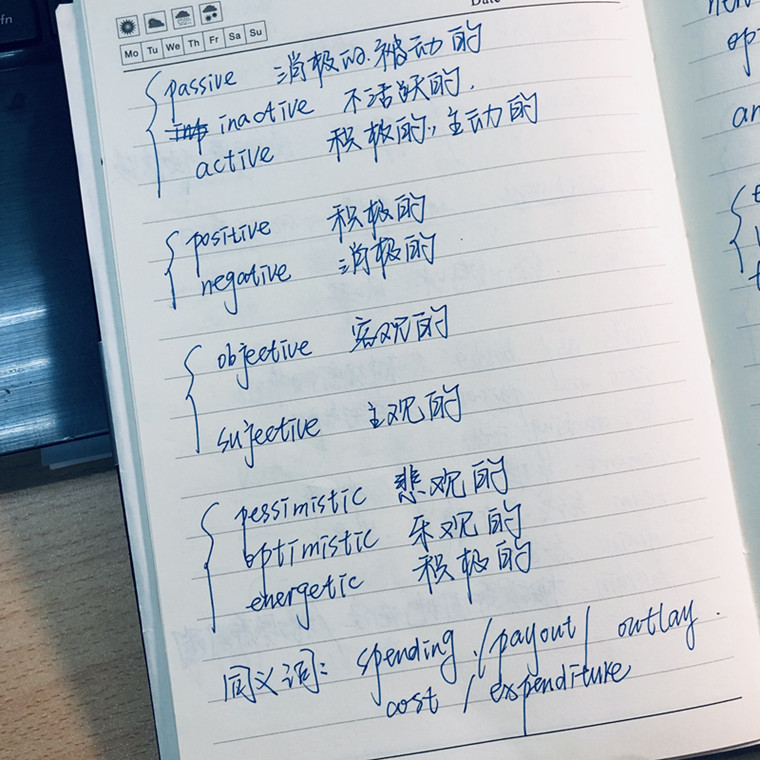 Date
Mo Tu We Th Fr Sa Su
passive 消极的、被动的
inactive 不活跃的.
active 积极的,主动的
positive 积极的
negative 消极的
objective 客观的
sujective 主观的
pessimistic 悲观的
optimistic 乐观的
energetic 积极的
同义词: spending / payout / outlay.
cost / expenditure
fn